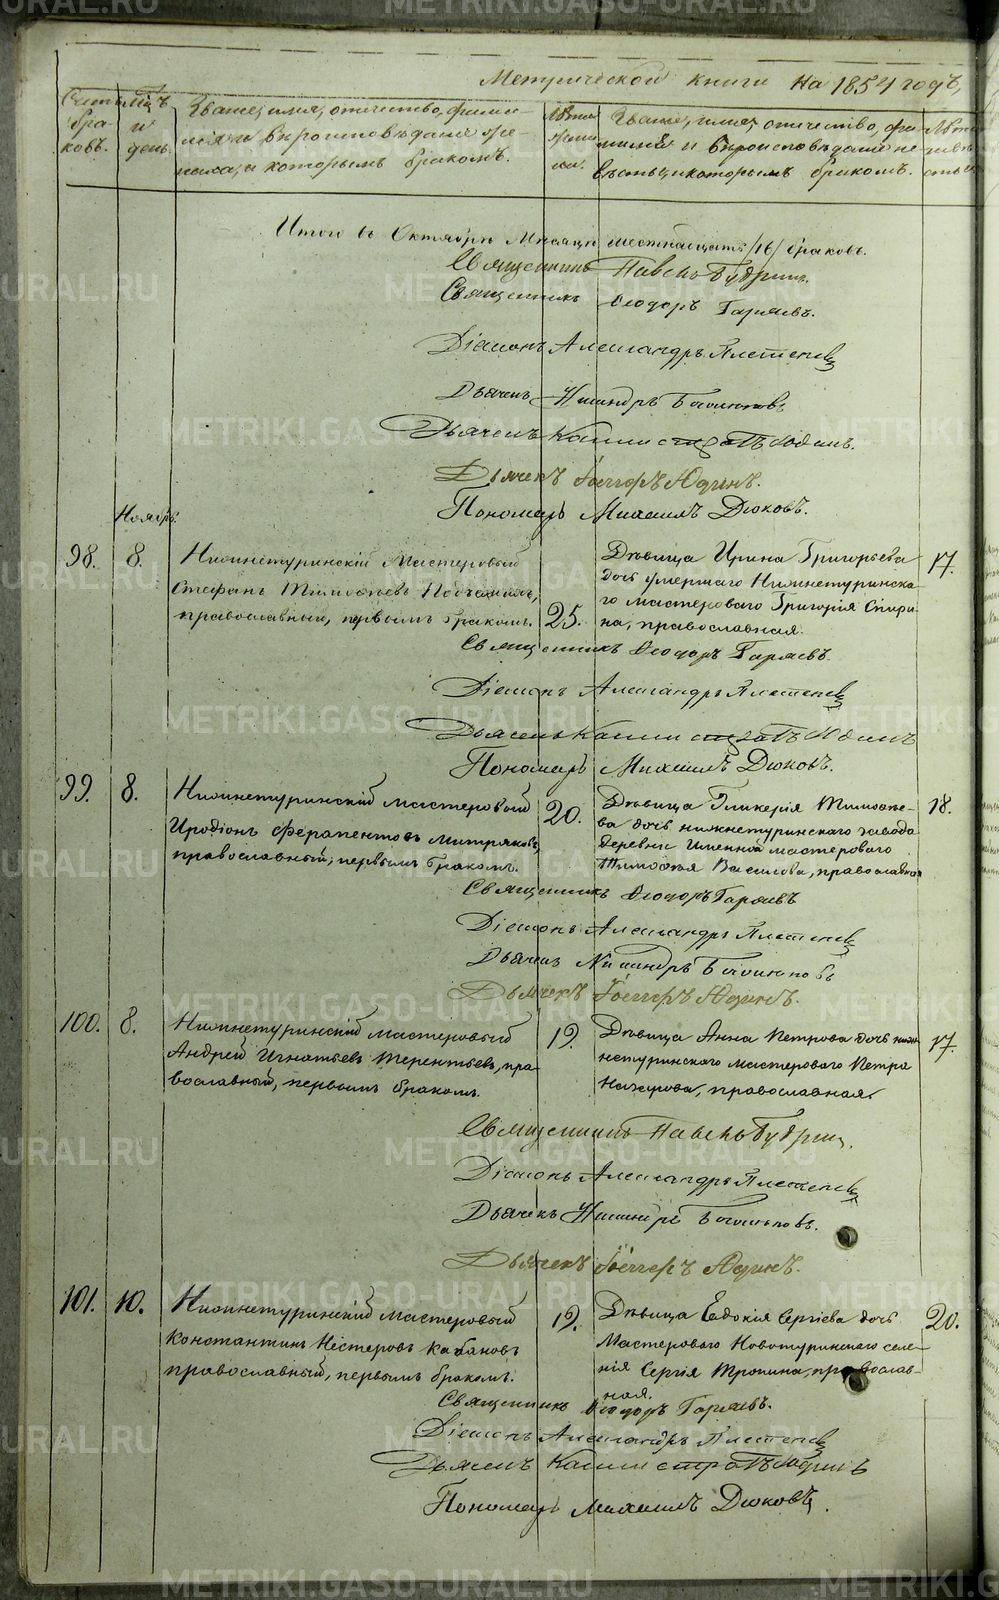 Метрической книги на 1854 годъ,
Счетъ бра-ковъ.
Мѣц. и день.
Званіе, имя, отечество, фами-
лія и вѣроисповѣданіе же-
ниха, и которымъ бракомъ.
Лѣта жени-ха.
Званіе, имя, отечество, фа-
милія и вѣроисповѣданіе не-
вѣсты, и которымъ бракомъ.
Лѣта невѣсты
Итого въ Октябрѣ Мѣсяцѣ шестнадцать /16/ браковъ.
Священникъ Павелъ Будринъ.
Священникъ Ѳеодоръ Гаряевъ.
Діаконъ Александръ Плетеневъ
Дьячекъ Никандръ
Дьячекъ Каллистратъ Юдинъ.
Дьячекъ Юдинъ.
Пономарь Михаилъ Дюковъ.
Ноябрь.
98. 8. Нижнетуринскій Мастеровый
Стефанъ Тимоѳеевъ
православный, первымъ бракомъ. 25.
Дѣвица Ирина Григорьева 17.
дочь умершаго Нижнетуринска-
го мастероваго Григорія Спири-
на, православная.
Священникъ Ѳеодоръ Гаряевъ.
Діаконъ Александръ Плетеневъ
Дьячекъ Каллистратъ Юдинъ
Пономарь Михаилъ Дюковъ.
99. 8. Нижнетуринскій мастеровый 20.
Иродіонъ Ферапонтовъ Митряковъ,
православный, первымъ бракомъ.
Дѣвица Гликерія Тимоѳее- 18.
ва дочь нижнетуринскаго завода
деревни Именной мастероваго
Тимоѳея Василова, православная
Священникъ Ѳеодоръ Гаряевъ
Діаконъ Александръ Плетеневъ
Дьячекъ Никандръ
Дьячекъ Юдинъ.
100. 8. Нижнетуринскій мастеровый 19.
Андрей Игнатьевъ Терентьевъ, пра-
вославный, первымъ бракомъ.
Дѣвица Анна Петрова дочь ниж- 17.
нетуринскаго мастероваго Петра
православная.
Священникъ Павелъ Будринъ.
Діаконъ Александръ Плетеневъ
Дьячекъ Никандръ
Дьячекъ Юдинъ.
101. 10. Нижнетуринскій мастеровый 19.
Константинъ Нестеровъ Кабановъ
православный, первымъ бракомъ.
Дѣвица Евдокія Сергіева дочь 20.
Мастероваго Новотуринскаго селе-
нія Сергія Тропина, православ-
ная.
Священникъ Ѳеодоръ Гаряевъ.
Діаконъ Александръ Плетеневъ
Дьячекъ Каллистратъ Юдинъ
Пономарь Михаилъ Дюковъ.
METRIKI.GASO-URAL.RU